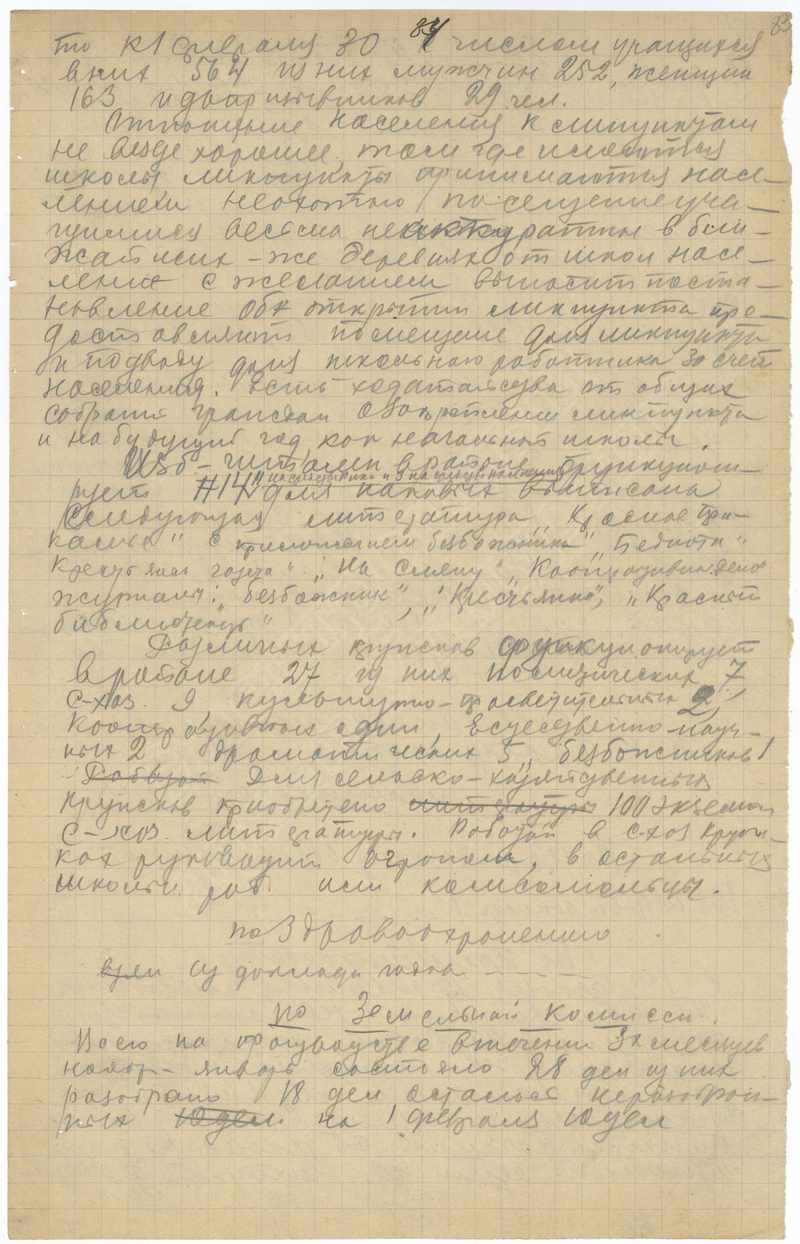 84 83
то к 1 февраля 30 числом учащихся
в них 564 из них мужчин 252, женщин
163 и допризывников 29 чел.
Отношение населения к ликпунктам
не везде хорошее, там где имеются
школы, ликпункты принимаются насе-
лением неохотно посещение уча-
щимися весьма неаккуратны в бли-
жайших-же деревнях от школ насе-
ление с желанием выносит поста-
новление об открытии ликпункта пре-
доставлять помещение для ликпункта
и подводу для школьного работника за счет
населения. Есть ходатайства от общих
собраний граждан о закреплении ликпункта
и на будущий год как начальной школы.
Изб-читален в районе функциони-
рует 14 для каковых выписана
следующая литература „Красное При-
камье" с приложением безбожника „Беднота"
Крестьянск газета" „На смену" „Кооперативн. дело
журналы: „безбожник", „Крестьянка", „Красный
библиотекарь"
Различных кружков функционирует
в районе 27 из них политических 7
с-хоз. 9, культурно-просветительных 2,
кооперативных один, Естественно-науч-
ных 2 драматических 5, безбожников 1
Работой Для сельско-хозяйственных
кружков приобретено литературы 100 экземпл
с-хоз. литературы. Работой в с-хоз круж-
ках руководит агроном, в остальных
школьн. раб. или комсомольцы.
по Здравоохранению
из доклада
по Земельной комиссии.
Всего на производстве в течении 3х месяцев
ноябрь-январь состояло 28 дел из них
разобрано 18 дел осталось неразобран-
ных 10 дел. на 1 февраля 10 дел